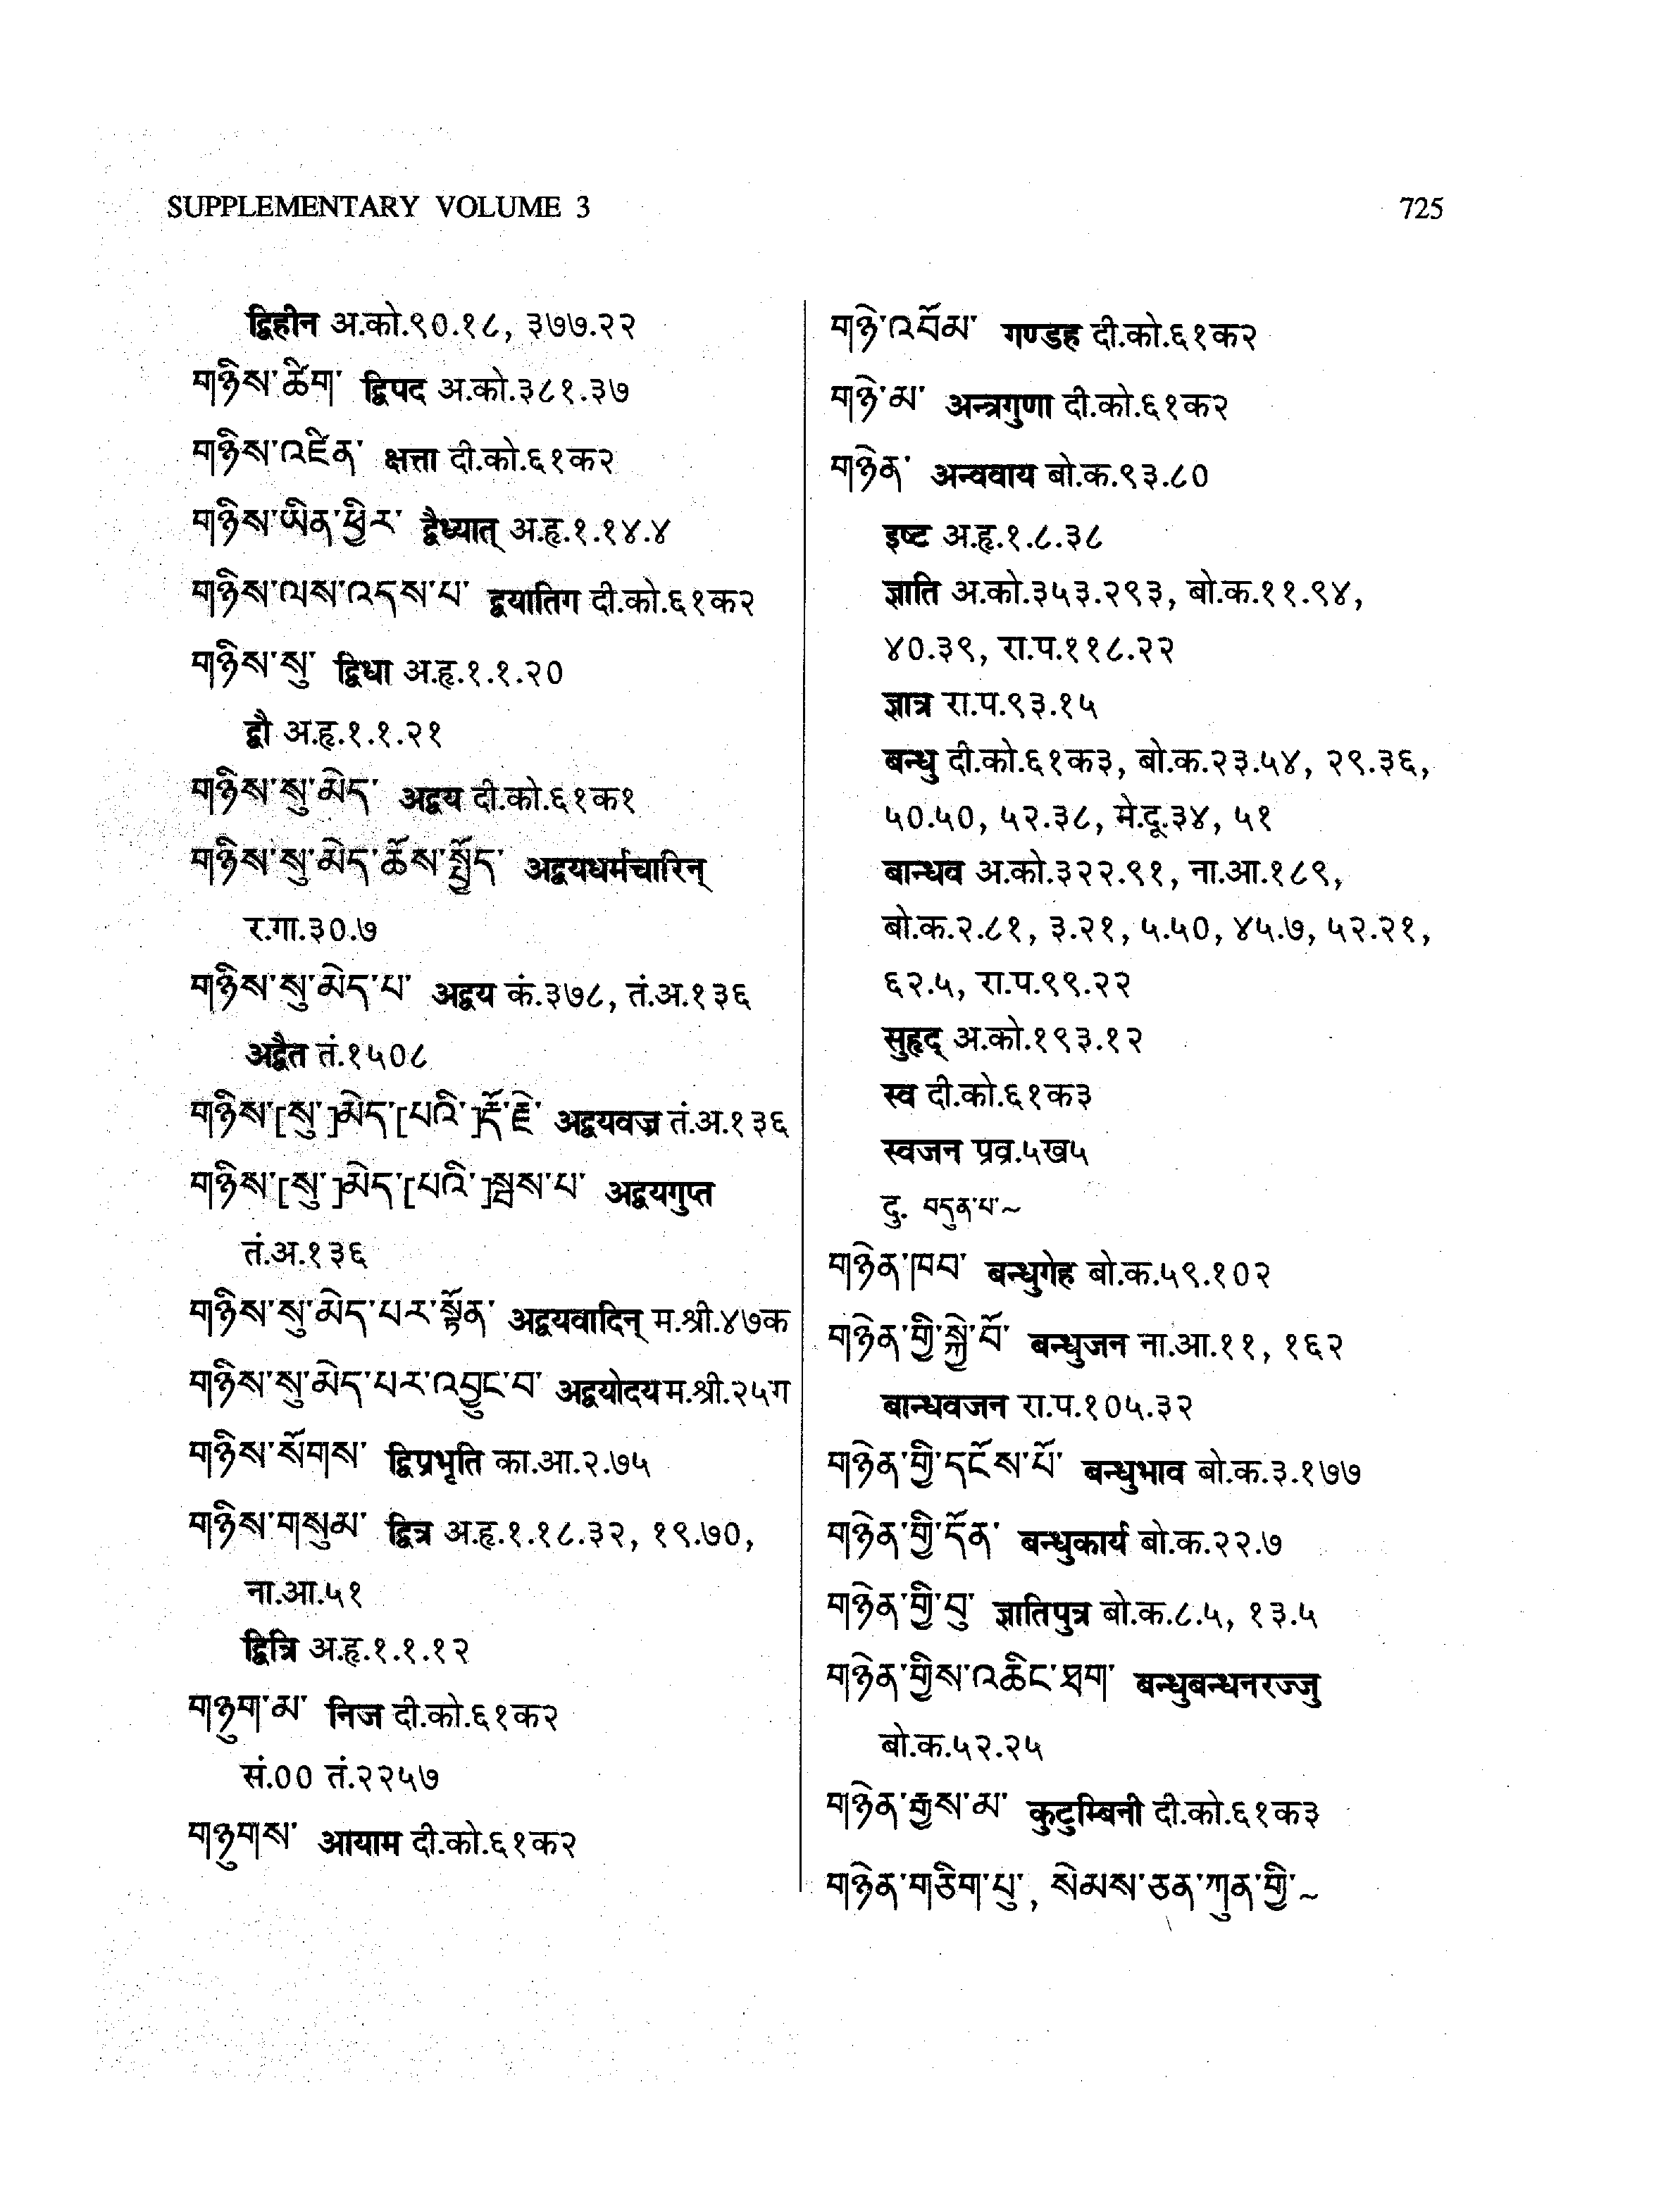 SUPPLEMENTARY VOLUME 3
725
द्विहीन अ.को.९०.१८, ३७७.२२
གཉིས་ཚིག་ द्विपद अ.को.३८१.३७
གཉིས་འཛིན་ क्षत्ता दी.को.६१क२
གཉིས་ཡིན་ཕྱིར་ द्वैध्यात् अ.हृ.१.१४.४
གཉིས་ལས་འདས་པ་ द्वयातिग दी.को.६१क२
གཉིས་སུ་ द्विधा अ.हृ.१.१.२०
द्वौ अ.हृ.१.१.२१
གཉིས་སུ་མེད་ अद्वय दी.को.६१क१
གཉིས་སུ་མེད་ཆོས་སྤྱོད་ अद्वयधर्मचारिन्
र.गा.३०.७
གཉིས་སུ་མེད་པ་ अद्वय कं.३७८, तं.अ.१३६
अद्वैत तं.१५०८
གཉིས་[སུ་]མེད་[པའི་]རྡོ་རྗེ་ अद्वयवज्र तं.अ.१३६
གཉིས་[སུ་]མེད་[པའི་]སྦས་པ་ अद्वयगुप्त
तं.अ.१३६
གཉིས་སུ་མེད་པར་སྟོན་ अद्वयवादिन् म.श्री.४७क
གཉིས་སུ་མེད་པར་འབྱུང་བ་ अद्वयोदय म.श्री.२५ग
གཉིས་སོགས་ द्विप्रभृति का.आ.२.७५
གཉིས་གསུམ་ द्वित्र अ.हृ.१.१८.३२, १९.७०,
ना.आ.५१
द्वित्रि अ.हृ.१.१.१२
གཉུག་མ་ निज दी.को.६१क२
सं.०० तं.२२५७
གཉུགས་ आयाम दी.को.६१क२
གཉེ་འབོམ་ गण्डह दी.को.६१क२
གཉེ་མ་ अन्त्रगुणा दी.को.६१क२
གཉེན་ अन्ववाय बो.क.९३.८०
इष्ट अ.हृ.१.८.३८
ज्ञाति अ.को.३५३.२९३, बो.क.११.९४,
४०.३९, रा.प.११८.२२
ज्ञात्र रा.प.९३.१५
बन्धु दी.को.६१क३, बो.क.२३.५४, २९.३६,
५०.५०, ५२.३८, मे.दू.३४, ५१
बान्धव अ.को.३२२.९१, ना.आ.१८९,
बो.क.२.८१, ३.२१, ५.५०, ४५.७, ५२.२१,
६२.५, रा.प.९९.२२
सुहृद् अ.को.१९३.१२
स्व दी.को.६१क३
स्वजन प्रव्र.५ख५
दु. བདུན་པ་~
གཉེན་ཁབ་ बन्धुगेह बो.क.५९.१०२
གཉེན་གྱི་སྐྱེ་བོ་ बन्धुजन ना.आ.११, १६२
बान्धवजन रा.प.१०५.३२
གཉེན་གྱི་དངོས་པོ་ बन्धुभाव बो.क.३.१७७
གཉེན་གྱི་དོན་ बन्धुकार्य बो.क.२२.७
གཉེན་གྱི་བུ་ ज्ञातिपुत्र बो.क.८.५, १३.५
གཉེན་གྱིས་འཆིང་ཐག་ बन्धुबन्धनरज्जु
बो.क.५२.२५
གཉེན་རྒྱས་མ་ कुटुम्बिनी दी.को.६१क३
གཉེན་གཅིག་པུ་, སེམས་ཅན་ཀུན་གྱི་~